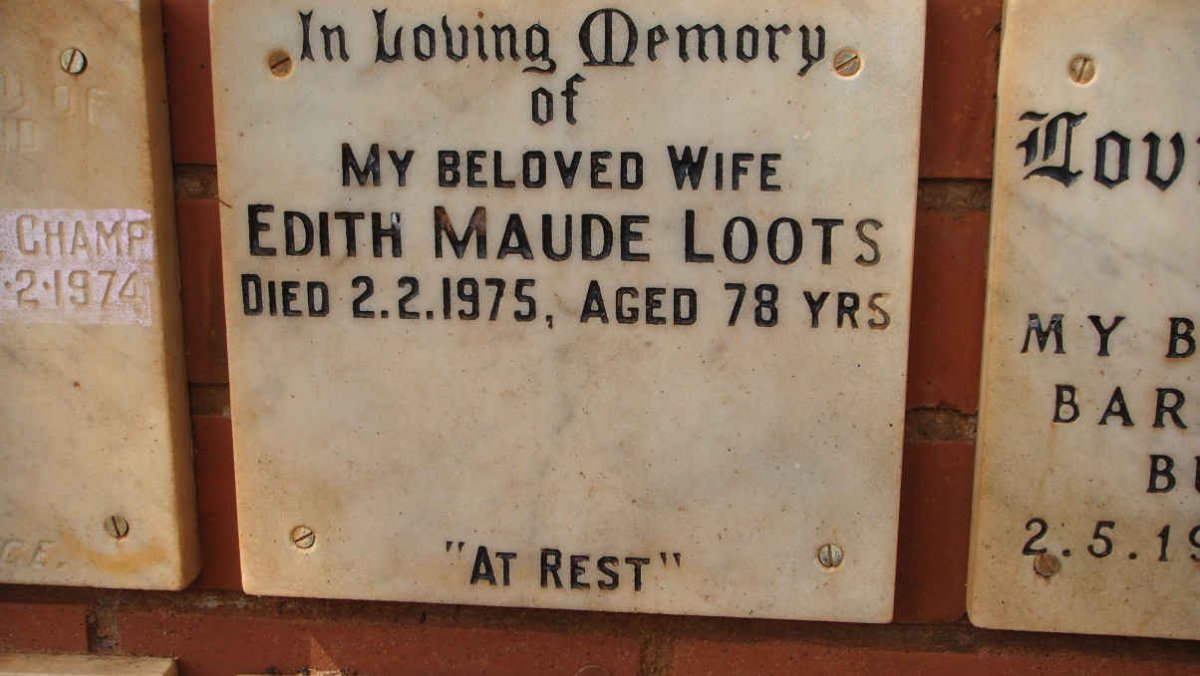 CHAMP
2.1974
In Loving Memory
of
MY BELOVED WIFE
EDITH MAUDE LOOTS
DIED 2.2.1975, AGED 78 YRS
"AT REST"
Lov
MY B
BAR
BU
2.5.19